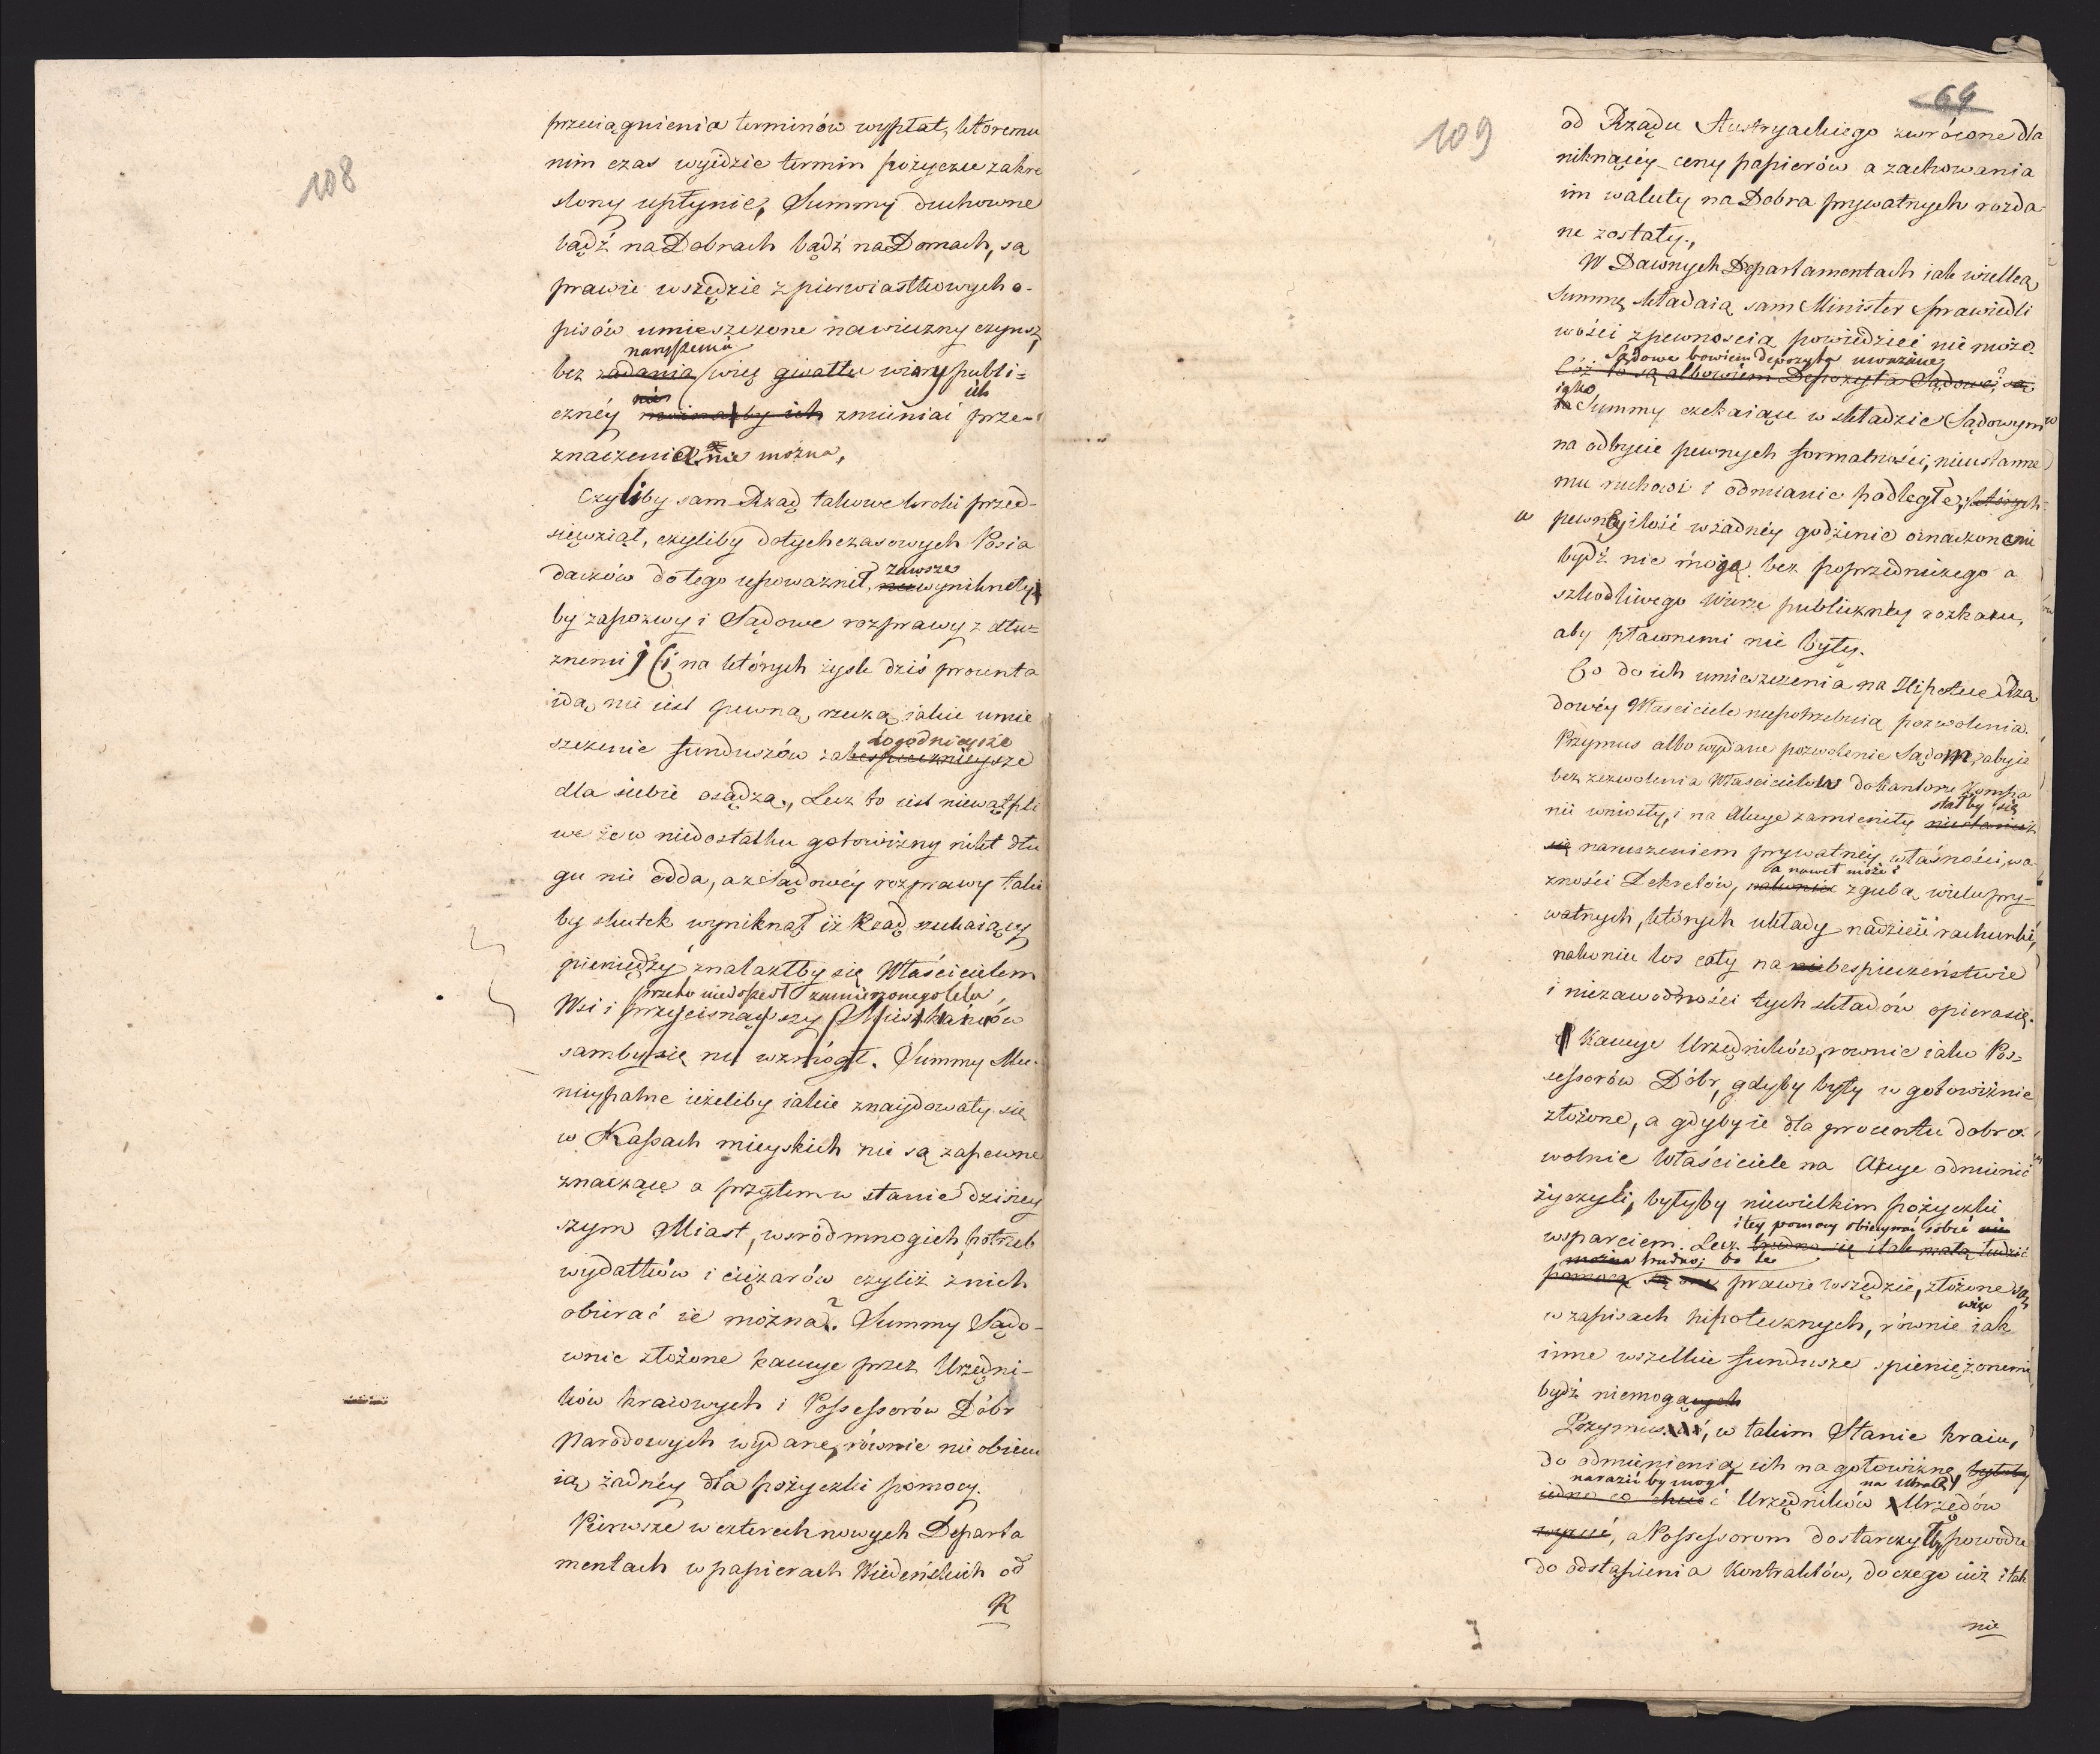 108
przeciągnienia terminów wypłat, któremu
nim czas wyidzie termin pożyczce zakre
slony upłynie, Summy duchowne
bądź na Dobrach bądź na Domach, są
prawie wszędzie z pierwiastkowych o-
pisów umieszczone na wieczny czynsz,
naruszenia
bez zadania więc gwałtu wiary publi=
nie ich
cznéy można by ich zmieniać prze-
znaczenia nie można,
Czyliby sam Rząd takowe kroki przed-
sięwziął, czyliby dotychczasowych Posia
zawsze
daczów do tego upoważnił, wyniknęły
by zapozwy i Sądowe rozprawy z dłu=
żnemi i na których zysk dziś procenta
idą, nie iest pewną rzeczą iakie umie
dogodnieysze
szczenie funduszów za bespiecznieysze
dla siebie osądzą, Lecz to iest niewątpli
we że w niedostatku gotowizny nikt dłu
gu nie odda, a z Sądowéy rozprawy taki
by skutek wyniknął iż Rząd szukaiący
pieniędzy znalazłby się Właścicielem
przeto niedopiął zamierzonego celu
Wsi i przycisnąwszy Mieszkańców
samby się nie wzmógł. Summy Mu-
nicypalne ieżeliby iakie znaydowały się
w Kassach mieyskich nie są zapewne
znaczące a przytem w stanie dzisiey
szym Miast, wsród mnogich potrzeb
wydatków i ciężarów czyliż z nich
obierać ie można? Summy Sądo-
wnie złożone kaucye przez Urzędni-
ków kraiowych i Possessorów Dóbr
Narodowych wydane, równie nie obiecu
ią żadnéy dla pożyczki pomocy.
Pierwsze w czterech nowych Departa
mentach w papierach Wiedeńskich od
R
64
109
od Rządu Austryackiego zwrócone dla
niknącéy ceny papierów a zachowania
im waluty na Dobra prywatnych rozda
ne zostały.,
W Dawnych Departamentach iak wielką
Summę składaią sam Minister Sprawiedli
wości z pewnoscią powiedzieć nie może.
Sądowe bowiem depozyta uważane
Cóż to są albowiem Depozyta Sądowe? są
iako
to Summy czekaiące w składzie Sądowym
na odbycie pewnych formalności, nieustanne
mu ruchowi i odmianie podległe, których
w pewnéy ilość w żadnéy godzinie oznaczonemi
bydź nie mogą bez poprzedniczego a
szkodliwego wierze publicznéy rozkazu,
aby pławnemi nie były.
Co do ich umieszczenia na Hipotece Rzą
dowéy Właściciele niepotrzebuią pozwolenia.
Przymus albo wydane pozwolenie Sądom, aby ie
bez zezwolenia Właścicielów do kantoru Kompa
stałby się
nii wniosły, i na Akcye zamieniły
się naruszeniem prywatnéy własności, wa-
a nawet może i
żności Dekretów, nakoniec zgubą wielu pry-
watnych, których układy nadzieie rachunki,
nakoniec los cały na niebespieczeństwie
i niezawodności tych składów opiera się.
Kaucye Urzędników, rownie iako Pos=
sessorów Dóbr, gdyby były w gotowiznie
złożone, a gdyby ie dla procentu dobro
wolnie Właściciele na Akcye odmienić
życzyli, byłyby niewielkim pożyczki
i tey pomocy obiecywać sobie nie
wsparciem. Lecz trudno się i tak małą łudzić
można trudno; bo te
pomocą są one prawie wszędzie, złożone są
więc
w zapisach hipotecznych, równie iak
inne wszelkie fundusze spieniężonemi
bydź niemogących
Przymus, w takim Stanie kraiu,
do odmienienia ich na gotowiznę, byłoby
narazić by mogł na utratę
iedno co chcieć Urzędników Urzędów
wyzuć, a Possessorom dostarczyłby powodu
do odstąpienia Kontraktów, do czego iuż i tak
nie